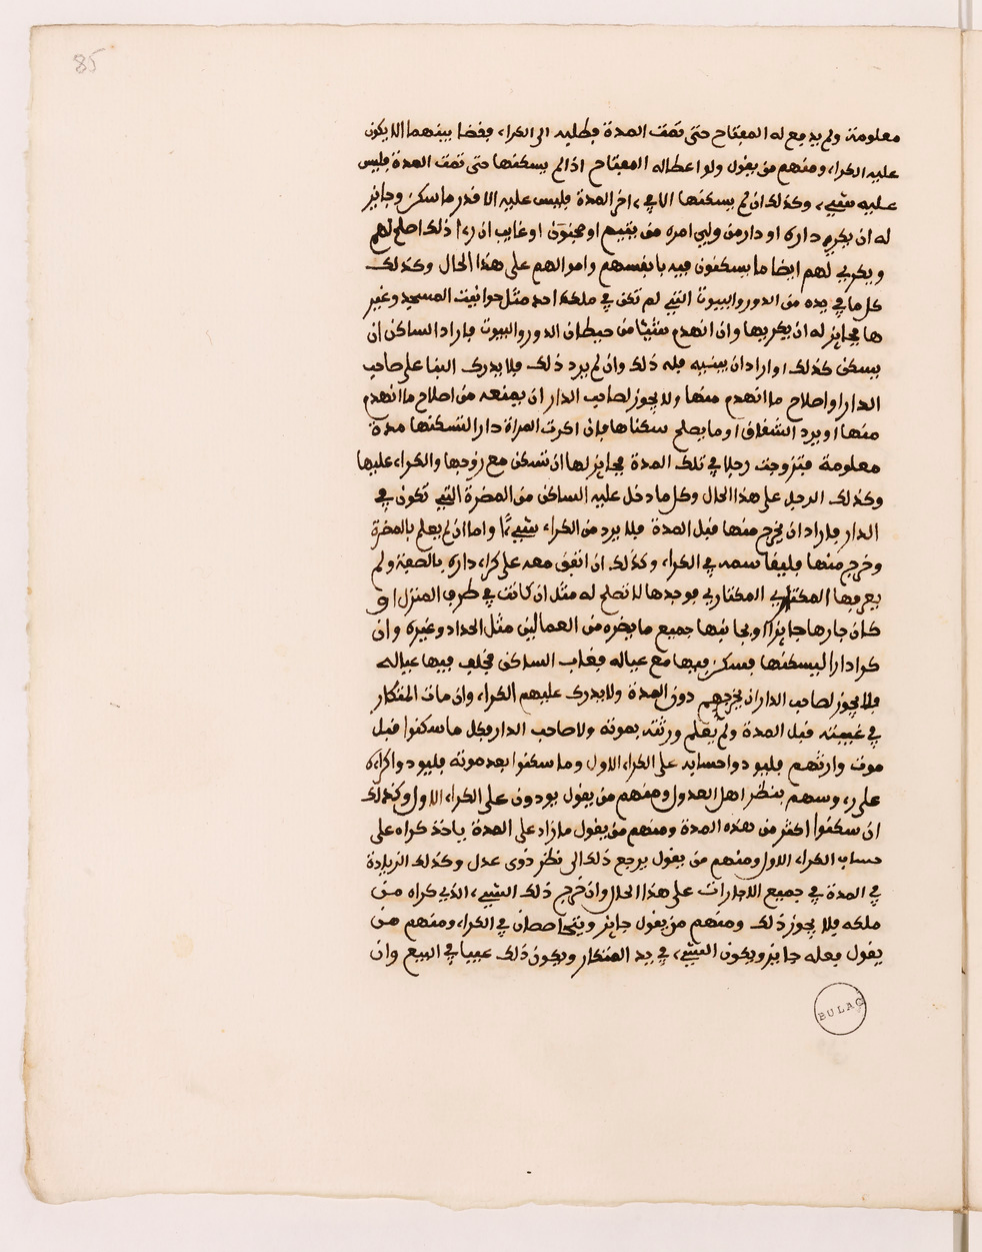 85
معلومة ولم يدفع له المفتاح حتى تمت المدة فطلبه الى الكراء فقضا بينهما الا يكون
عليه الكراء ومنهم من يقول ولو اعطاله المفتاح اذا لم يسكنها حتى تمت المدة فليس
عليه شيء وكذلك ان لم يسكنها الا في ءاخر المدة فليس عليه الا قدر ما سكن وجايز
له ان يكري داره او دار من ولي امره من يتيم او مجنون او غايب ان رءا ذلك اصلح لهم
ويكري لهم ايضا ما يسكنون فيه بانفسهم واموالهم على هذا الحال وكذلك
كل ما في يده من الدور والبيوت التي لم تكن في ملك احد مثل حوانيت المسجد وغير
ها فجايز له ان يكريها وان انهدم شيئا من حيطان الدور والبيوت فاراد الساكن ان
يسكن كذلك او اراد ان يبنيه فله ذلك وان لم يرد ذلك فلا يدرك البنا على صاحب
الدار او اصلاح ما انهدم منها ولا يجوز لصاحب الدار ان يمنعه من اصلاح ما انهدم
منها او يرد الشقاق او ما يصلح سكناها فان اكرت المراة دارا لتسكنها مدة
معلومة فتزوجت رجلا في تلك المدة فجايز لها ان تسكن مع زوجها والكراء عليها
وكذلك الرجل على هذا الحال وكل ما دخل عليه الساكن من المضرة التي تكون في
الدار فاراد ان يخرج منها قبل المدة فلا يرد من الكراء شيئا واما ان لم يعلم بالمضرة
وخرج منها فليقاسمه في الكراء وكذلك ان اتفق معه على كراء داره بالصفة ولم
يعرفها المكتاري فوجدها لا تصلح له مثل ان كانت في طرف المنزل او
كان جارها جايزا او بجانبها جميع ما يضره من العمالين مثل الحداد وغيره وان
كرا دارا ليسكنها فسكن فيها مع عياله فغاب الساكن فخلف فيها عياله
فلا يجوز لصاحب الدار ان يخرجهم دون المدة ولا يدرك عليهم الكراء وان مات المتكار
في غيبته قبل المدة ولم تعلم ورثته بموته ولا صاحب الدار فكل ما سكنوا قبل
موت وارثهم فليودوا حسابه على الكراء الاول وما سكنوا بعد موته فليودوا كراءه
على رءوسهم بنظر اهل العدول ومنهم من يقول يودون على الكراء الاول وكذلك
ان سكنوا اكثر من هذه المدة ومنهم من يقول ما زاد على المدة ياخذ كراه على
حساب الكراء الاول ومنهم من يقول يرجع ذلك الى نظر ذوى عدل وكذلك الزيادة
في المدة في جميع الاجارات على هذا الحال وان خرج ذلك الشيء الذي كراه من
ملكه فلا يجوز ذلك ومنهم من يقول جايز ويتحاصصان في الكراء ومنهم من
يقول فعله جايز ويكون الشيء في يد المتكار ويكون ذلك عيبا في البيع وان
BULAC